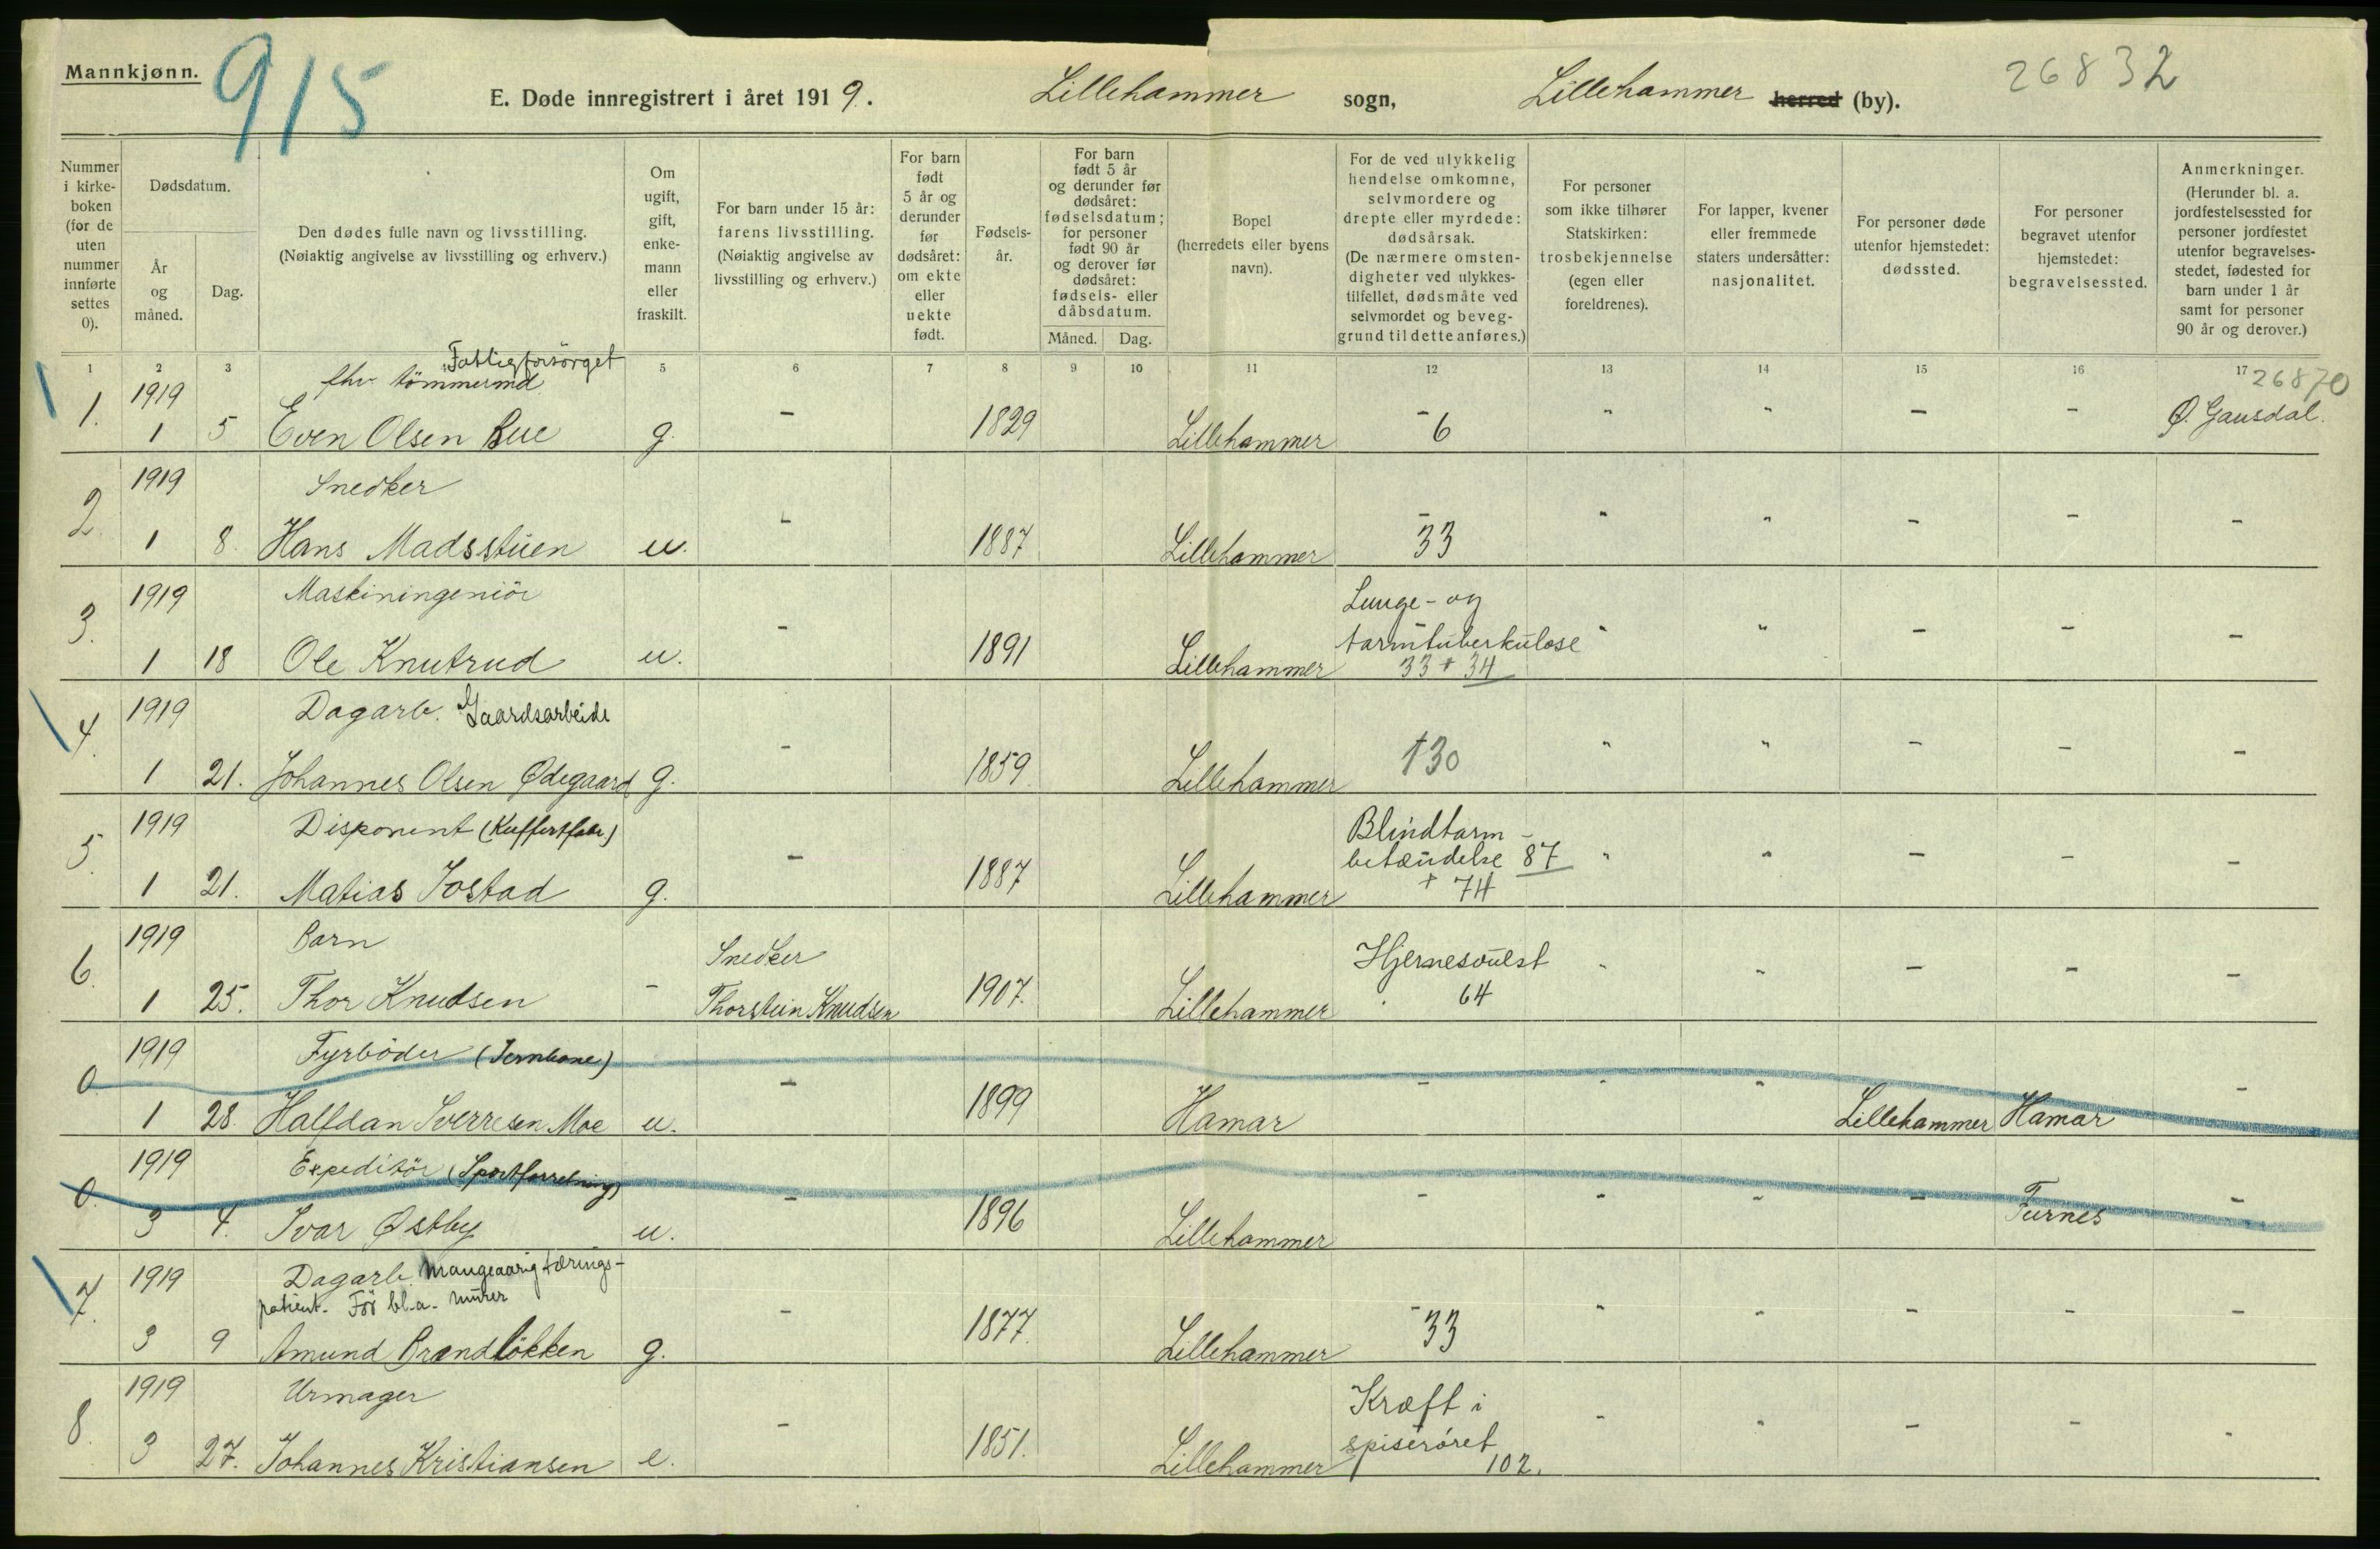 Mannkjønn.
915
E. Døde innregistrert i året 1919. Lillehammer sogn, Lillehammer herred (by).
26832
Nummer i kirkeboken (for de uten nummer innførte settes 0).
Dødsdatum.
År og måned.
Dag.
Den dødes fulle navn og livsstilling.
(Nøiaktig angivelse av livsstilling og erhverv.)
Om ugift, gift, enkemann eller fraskilt.
For barn under 15 år: farens livsstilling.
(Nøiaktig angivelse av livsstilling og erhverv.)
For barn født 5 år og derunder før dødsåret: om ekte eller uekte født.
Fødselsår.
For barn født 5 år og derunder før dødsåret: fødselsdatum; for personer født 90 år og derover før dødsåret: fødsels- eller dåbsdatum.
Måned. Dag.
Bopel (herredets eller byens navn).
For de ved ulykkelig hendelse omkomne, selvmordere og drepte eller myrdede: dødsårsak.
(De nærmere omstendigheter ved ulykkestilfellet, dødsmåte ved selvmordet og beveggrund til dette anføres.)
For personer som ikke tilhører Statskirken: trosbekjennelse (egen eller foreldrenes).
For lapper, kvener eller fremmede staters undersåtter: nasjonalitet.
For personer døde utenfor hjemstedet: dødssted.
For personer begravet utenfor hjemstedet: begravelsessted.
Anmerkninger.
(Herunder bl. a. jordfestelsessted for personer jordfestet utenfor begravelsesstedet, fødested for barn under 1 år samt for personer 90 år og derover.)
1 2 3 5 6 7 8 9 10 11 12 13 14 15 16 17
26870
1. 1919 fhv. tömmermd. Fattigforsörget
1 5 Even Olsen Bue g. - 1829 Lillehammer - 6 " " - - Ø. Gausdal.
2 1919 Snedker
1 8. Hans Madsstuen u. - 1887 Lillehammer - 33 " " - - -
3. 1919 Maskiningeniör Lunge- og
tarmtuberkulose
1 18 Ole Knutrud u. - 1891 Lillehammer 33 + 34 " " - - -
4. 1919 Dagarb. Gaardsarbeide
1 21. Johannes Olsen Ødegaard g. - 1859 Lillehammer 130 " " - - -
5. 1919 Disponent (Kuffertfabr) Blindtarm-
betændelse 87
1 21. Matias Jostad g. - 1887 Lillehammer + 74 " " - - -
6. 1919 Barn Snedker Hjernesvulst
1 25. Thor Knudsen - Thorstein Knudsen 1907. Lillehammer 64 " " - - -
0 1919 Fyrböder (Jernbane)
1 28. Halfdan Sverresen Moe u. - 1899 Hamar - " " Lillehammer Hamar -
0. 1919 Expeditör (Sportforretning)
3 4. Ivar Østby u. - 1896 Lillehammer - " " - Furnes -
7. 1919 Dagarb. Mangeaarig tærings-
patient. För bl.a. murer
3 9 Amund Brandløkken g. - 1877. Lillehammer - 33 " " - - -
8. 1919 Urmager Kræft i
spiserøret
3 27. Johannes Kristiansen e. - 1851. Lillehammer 102. " " - - -